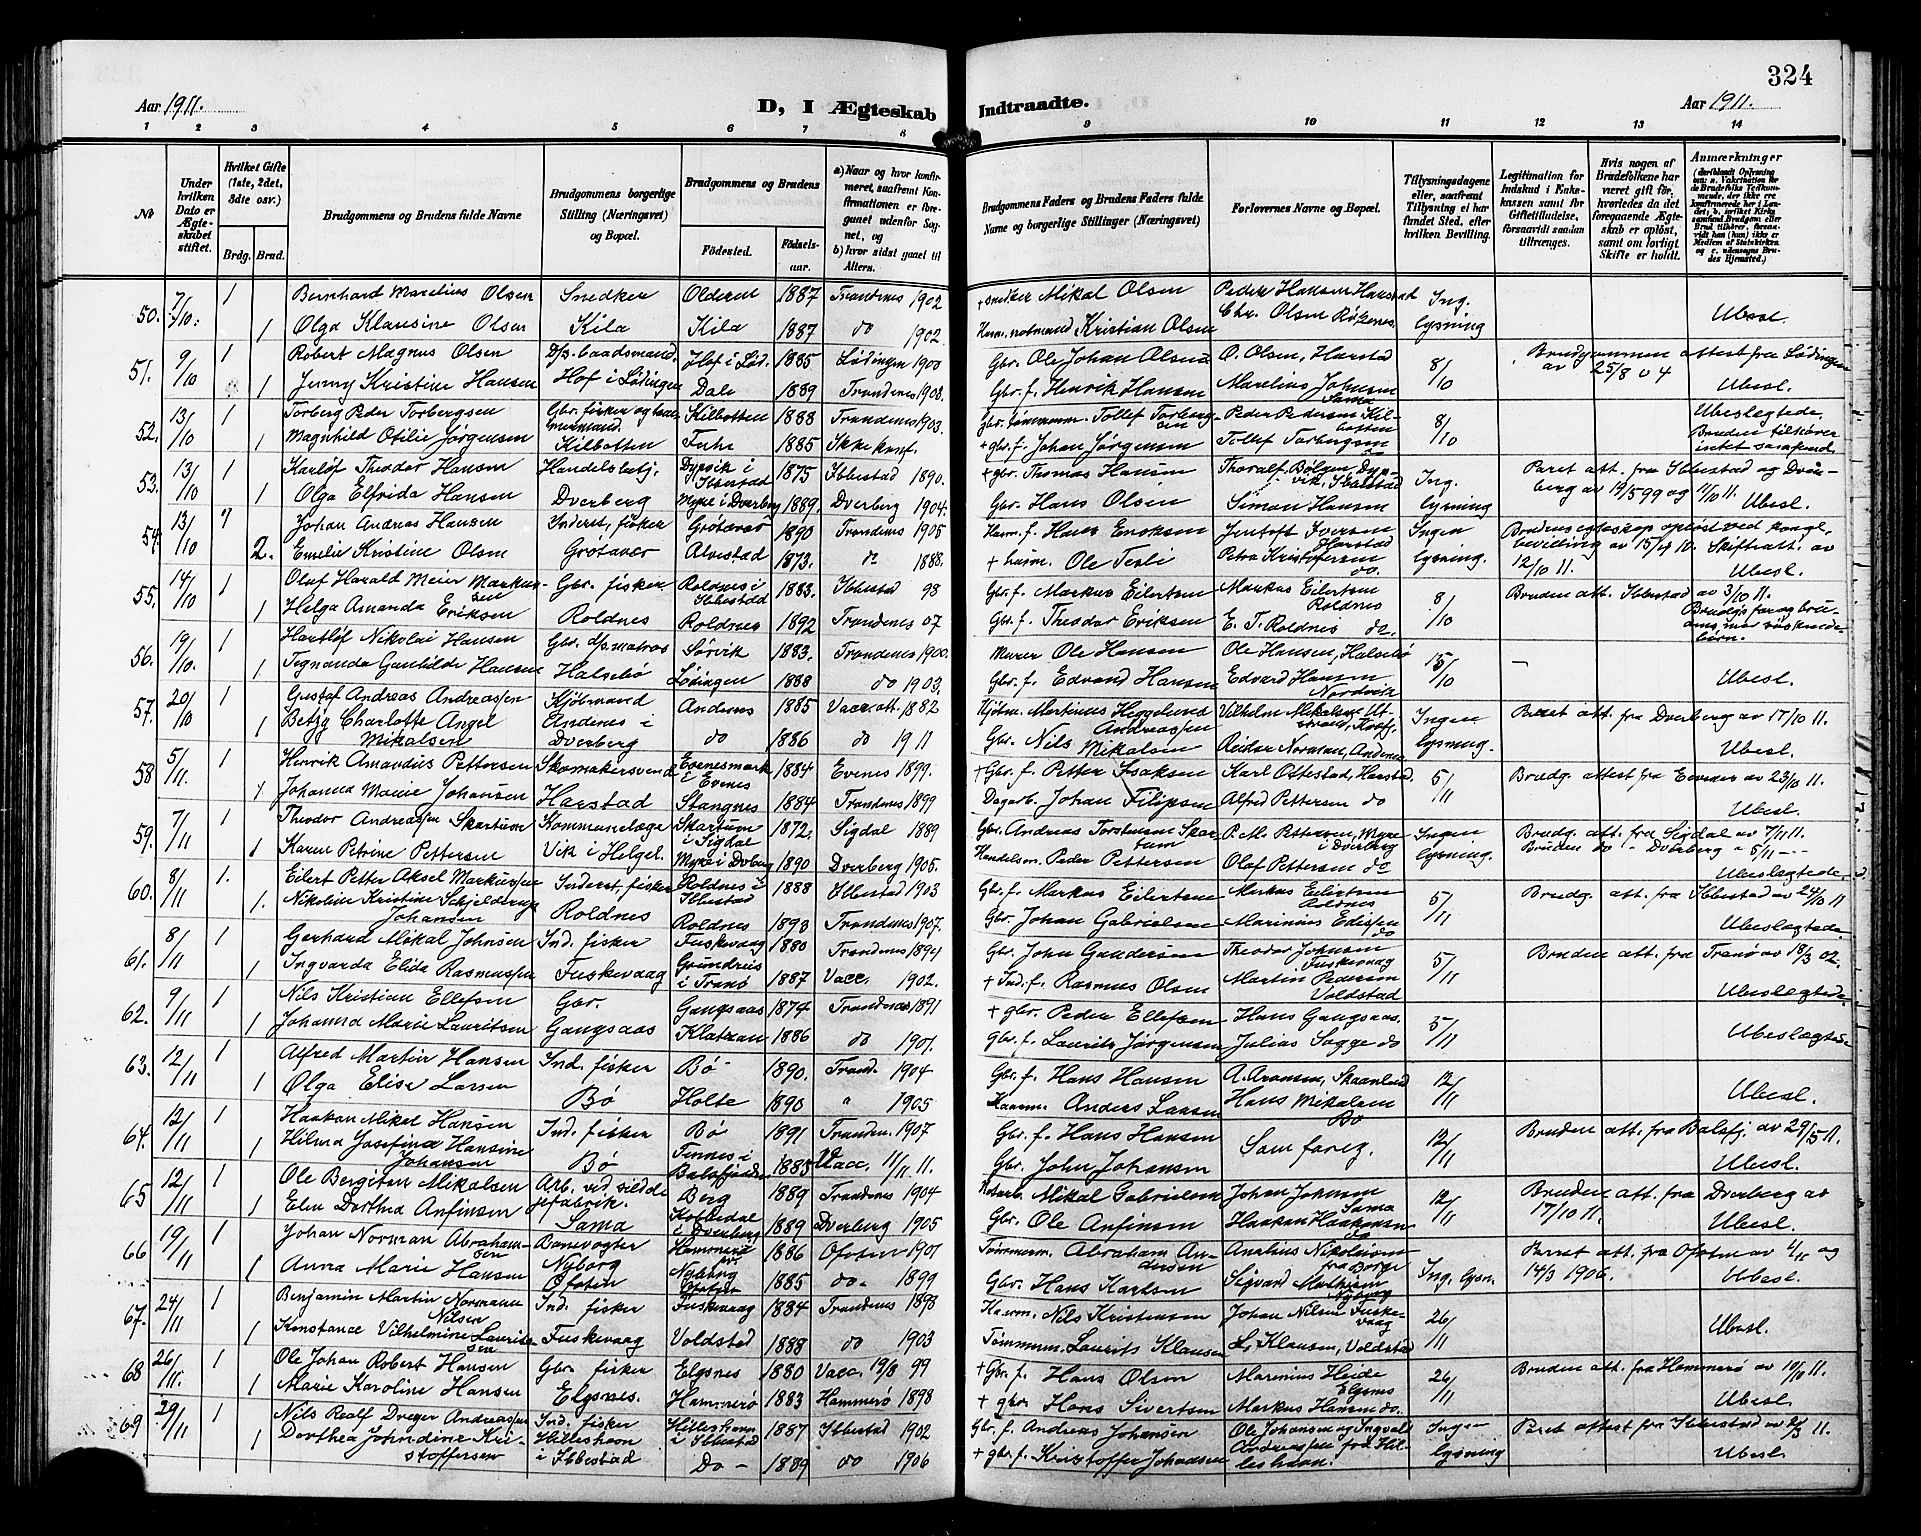 324
Aar 1911.
D, I Ægteskab Indtraadte.
Aar 1911.
1 2 3 4 5 6 7 8 9 10 11 12 13 14
No
Under hvilken Dato er Ægteskabet stiftet.
Hvilket Gifte (1ste, 2det, 3die osv.)
Brdg. Brud.
Brudgommens og Brudens fulde Navne
Brudgommens borgerlige Stilling (Næringsvei) og Bopæl.
Brudgommens og Brudens
Födested. Födselsaar.
a) Naar og hvor konfirmeret, saafremt Konfirmationen er foregaaet udenfor Sognet, og b) hvor sidst gaaet til Alters.
Brudgommens Faders og Brudens Faders fulde Navne og borgerlige Stillinger (Næringsvei)
Forlovernes Navne og Bopæl.
Tillysningsdagene eller, saafremt Tillysning ei har fundet Sted, efter hvilken Bevilling.
Legitimation for Indskud i Enkekassen samt for Giftetilladelse, forsaavidt saadan tiltrænges.
Hvis nogen af Brudefolkene har været gift för, hvorledes da det foregaaende Ægteskab er oplöst, samt om lovligt Skifte er holdt.
Anmærkninger
50. 7/10. 1 Bernhard Marelius Olsen Snedker Olderen 1887 Trondenes 1902 + snedker Mikal Olsen Peder Hansen Harstad Ing.
1 Olga Klausine Olsen Kila Kila 1887 do 1902. Kristian Olsen Chr. Olsen Røkenes. lysning Ubesl.
51. 9/10 1 Robert Magnus Olsen Dfs. baadsmand. Hof i Lød. 1885 Lødingen 1900 Gbr. Ole Johan Olsen O. Olsen, Harstad 8/10 Brudgommen attest fra Lødingen
1 Jenny Kristine Hansen Hof i Lødingen Dale 1889 Trondenes 1903. Gbr. f. Henrik Hansen Marelius Johnsen Sama av 25/8 04 Ubesl.
52. 13/10 1 Torberg Peder Torbergsen Gbr. fisker og Kilbotten 1888 Trondenes 1903. Gbr. tømmerm. Tollef Torbergsen Peder Pedersen Kilbotten 8/10 Ubeslegtede.
1 Magnhild Otilie Jørgensen Kilbotten 1885 Ikke konf. + gbr. f. Johan Jørgensen Tollef Torbergsen do Bruden tilhører intet samfund
53. 13/10 1 Karlof Theodor Hansen Handelsbetj. Dyrvik i Ibbestad 1875 Ibbestad 1890. + gbr. Thomas Hansen Thoralf Ing. Paret att. fra Ibbestad og Dver-
1 Olga Elfrida Hansen Dverberg Myre i Dverberg 1889 Dverberg 1904. Gbr. Hans Olsen Simon Hansen lysning berg av 19/5 99 og 11/10 11. Ubesl.
54. 13/10 Johan Andreas Hansen Inderst, fisker Grøtavær 1890 Trondenes 1905 f. Hans Enoksen Jentoft Iversen Harstad Ingen
2. Emelie Kristine Olsen Grøtavær Alvestad 1873. do 1888. + husm. Ole Tesli Petra Kristoffersen do. lysning. bevilling av 15/4 10. Skifteatt. av 12/10 11. Ubesl.
55. 14/10 1 Oluf Harald Meier Markussen Gbr. fisker Roldnes i Ibbestad 1883. Ibbestad 98 Gbr. f. Markus Eilertsen Markus Eilertsen Roldnes 8/10 Bruden att. Ibbestad av 3/10 11.
1 Helga Amanda Eriksen Roldnes Roldnes 1892 Trondenes 07 Gbr. f. Theodor Eriksen E. T. Roldnes do.
56. 19/10. 1 Hartlof Nikolai Hansen Gbr. dfs. matros Sørvik 1883. Trondenes 1900. Murer Ole Hansen Ole Hansen, Halsebø 15/10 —
1 Tignanda Gunhilde Hansen Halsebø Lødingen 1888 do 1903. Gbr. f. Edvard Hansen Edvard Hansen Nordvik Ubesl.
57. 20/10 1 Gustaf Andreas Andreassen Kjøbmand Andenes 1885 Vacc. att. 1882 Kjøbm. Martinus Andreassen Vilhelm Mikalsen Ingen Paret att. fra Dverberg av 17/10 11.
1 Betzy Charlotte Angel Mikalsen Andenes i Dverberg do 1886 do 1911 Gbr. Nils Mikalsen Reidar Norman, Andenes lysning. Ubesl.
58 5/11. 1 Henrik Amandus Pettersen Skomakersvend Evenesmark i Evenes 1884 Evenes 1899. + Gbr. f. Petter Isaksen Karl Ottestad, Harstad. 5/11 Brudg. attest fra Evenes av 23/10 11.
1 Johanna Marie Johansen Harstad Stangnes 1884 Trondenes 1899 Dagarb. Johan Filipsen Alfred Pettersen do Ubesl.
59. 7/11 1 Theodor Andreassen Skartum Kommunelæge Skartum i Sigdal 1872. Sigdal 1889 Gbr. Andreas Torstensen Skartum P. M. Pettersen, Myre i Dverberg Ingen Brudg. att. fra Sigdal av 7/11 11.
1 Karen Petrine Pettersen Vik i Helgel. Myre i Dverberg 1890 Dverberg 1905. Handelsm. Peder Pettersen Olaf Pettersen do lysning. Bruden do " Dverberg " 5/11 - - Ubeslegtede.
60. 8/11 1. Eilert Petter Aksel Markussen Inderst, fisker Roldnes i Ibbestad 1888 Ibbestad 1903 Gbr. f. Markus Eilertsen Markus Eilertsen Roldnes 5/11 Brudg. att. fra Ibbestad av 24/10 11
1. Nikoline Kristine Schjelderup Johansen Roldnes Roldnes 1893 Trondenes 1907. Gbr. Johan Gabrielsen Marinius Edissen do Ubeslegtede.
61. 8/11 1 Gerhard Mikal Johnsen Ind. fisker Fuskevaag 1880 Trondenes 1894 Gbr. John Gundersen Theodor Johnsen Fuskevaag 5/11 Bruden att. fra Tranø av 18/3 02.
1 Ingvarda Elida Rasmussen Fuskevaag i Tranø 1887 Vacc. 1902. + Ind. f. Rasmus Olsen Martin Pedersen Voldstad Ubeslegtede
62. 9/11 1 Nils Kristian Ellefsen Gbr. Gangsaas 1874 Trondenes 1891 + gbr. Peder Ellefsen Hans Gangsaas. 5/11
1 Johanna Marie Lauritsen Gangsaas Klatran 1886 do 1901. Gbr. f. Laurits Jørgensen Julius Sagge do Ubeslegtede
63. 12/11 1 Alfred Martin Hansen Ind. fisker Bø - 1890. Trond. 1904 Gbr. f. Hans Hansen A. Aronsen, Skaanland 12/11
1 Olga Elise Larsen Bø Holte 1890 " 1905 Anders Larsen Hans Mikalsen Bø Ubesl.
64. 12/11 1 Haakon Mikal Hansen Ind. fisker Bø 1891 Tronden. 1907 Gbr. f. Hans Hansen Som foreg. 12/11 Bruden att. fra Balsfj. av 29/5 11.
1 Hilma Josefine Hansine Johansen Bø Tennes i Balsfjorden 1885 Vacc. 11/11 11. Gbr. John Johansen Ubesl.
65 12/11 1 Ole Bergiton Mikalsen Arb. ved sildoljefabrik. Berg 1889 Trondenes 1904 Mikal Gabrielsen Johan Johnsen Sama 12/11 Bruden att. fra Dverberg av
1 Elen Dorthea Anfinsen Sama i Dverberg 1889 Dverberg 1905 Gbr. Ole Anfinsen Haakon Haakonsen do 17/10 11. Ubesl.
66 19/11 1 Johan Norman Abrahamsen Banevogter Hammerø 1886 Ofoten 1901 Tømmerm. Abraham Andersen Anelius Nikolaisen fra Borge Ing. lysn. Paret att. fra Ofoten av 4/11 og
1 Anna Marie Hansen Nyborg Ofoten Nyborg Ofoten 1885 do. 1899 Gbr. Hans Karlsen Sigvard Mathisen Nyborg 14/3 1906. Ubesl.
67. 24/11 1 Benjamin Martin Normann Nilsen Ind. fisker Fuskevaag 1884 Trondenes 1898 Nils Kristensen Johan Nilsen Fuskevaag 26/11
1 Konstance Vilhelmine Lauritssen Fuskevaag Voldstad 1888 do 1903 Tømmerm. Laurits Klausen L. Klausen, Voldstad Ubesl.
68 26/11. 1 Ole Johan Robert Hansen Gbr. fisker Elgsnes 1880 Vacc. 19/8 99 + Gbr. f. Hans Olsen Marinius Heide Elgsnes 26/11 Bruden att. fra Hammerø av 10/10 11.
1 Marie Karoline Hansen Elgsnes. Hammerø 1883 Hammerø 1898 + gbr. Hans Sivertsen Markus Hansen do. Ubesl.
69 29/11 1 Nils Realf Dreyer Andreassen Ind. fisker Hilleshavn i Ibbestad 1887 Ibbestad 1902 Gbr. f. Andreas Johansen Ole Johansen og Ingvald Ingen Paret attest fra Ibbestad av 2/3 11.
1 Dorthea Johndine Kristoffersen Hilleshavn i Ibbestad Do - 1889 do 1906 + gbr. f. Kristoffer Johansen Andreassen fra Hilleshavn. lysning Ubesl.